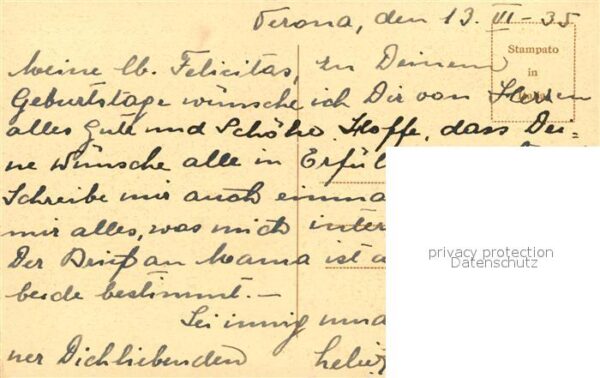 Verona, den 13. VI - 35
Stampato
in
Meine lb. Felicitas, zu Deinem
Geburtstage wünsche ich Dir von Herzen
alles Gute und Schöne. Hoffe, dass Dei=
ne Wünsche alle in Erfül
Schreibe mir auch einma
mir alles, was mich inter
Der Brief an Mama ist
beide bestimmt. –
Sei innig
ner Dichliebenden
privacy protection
Datenschutz